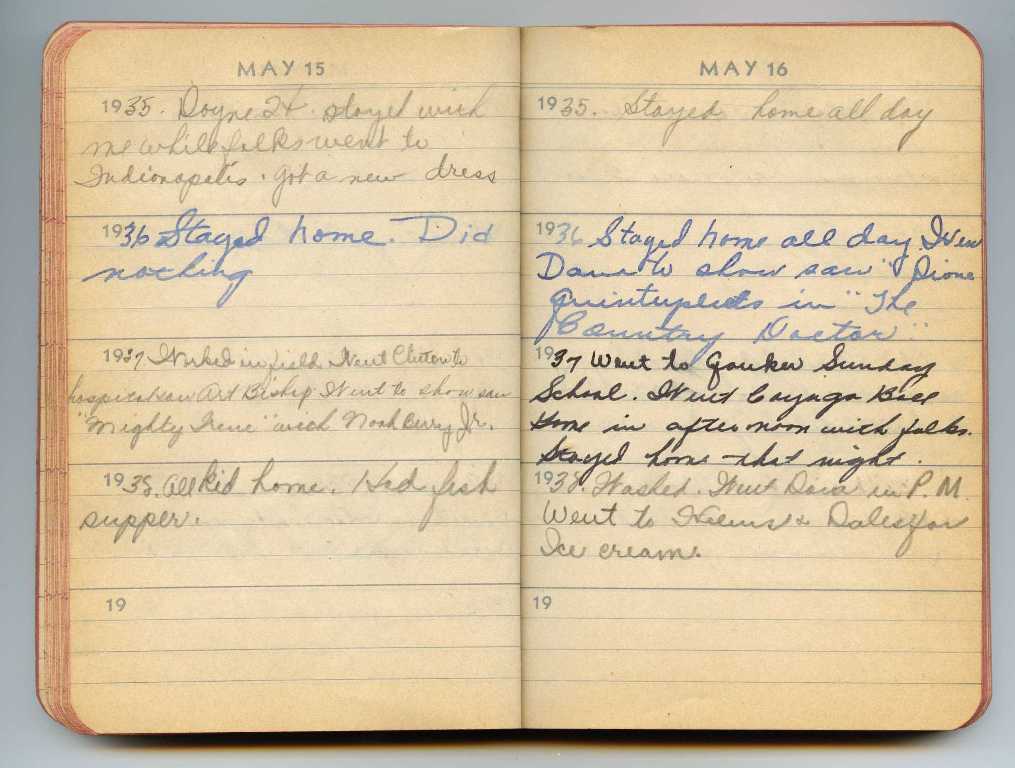 MAY 15
1935. Doyne 24. stayed with
me while folks went to
Indianapolis. Got a new dress
1936 Stayed home. Did
nothing
1937 Worked in field. Went Clinton to
hospital saw Art Bishop. Went to show saw
"Mighty Irene" with Noah Berry Jr.
1938. All kid home. Had fish
supper.
19
MAY 16
1935. Stayed home all day
1936 Stayed home all day. Went
Dana to show saw "Dione
Quintuplets in "The
Country Doctor".
1937 Went to Sunday
School. Went Cayuga Base
in afternoon with folks.
Stayed home that night.
1938. Washed. Went Dana in P.M.
Went to & Dales for
Ice cream.
19